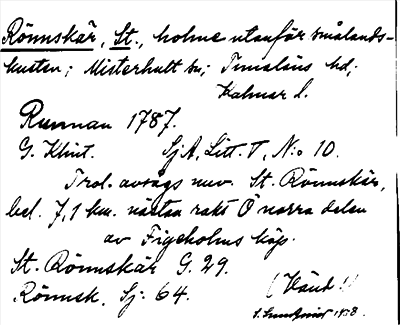 Rönnskär, St., holme utanför smålands-
kusten; Misterhult sn; Tunaläns hd;
Kalmar l.
Runnan 1787.
G. Klint. SjA, Litt. V, N:o 10.
Trol. avsågs nuv. St. Rönnskär,
bel. 7,1 km. nästan rakt Ö norra delen
av Figeholms köp.
St. Rönnskär G. 29.
Rönnsk. Sj: 64.
(Vänd!)